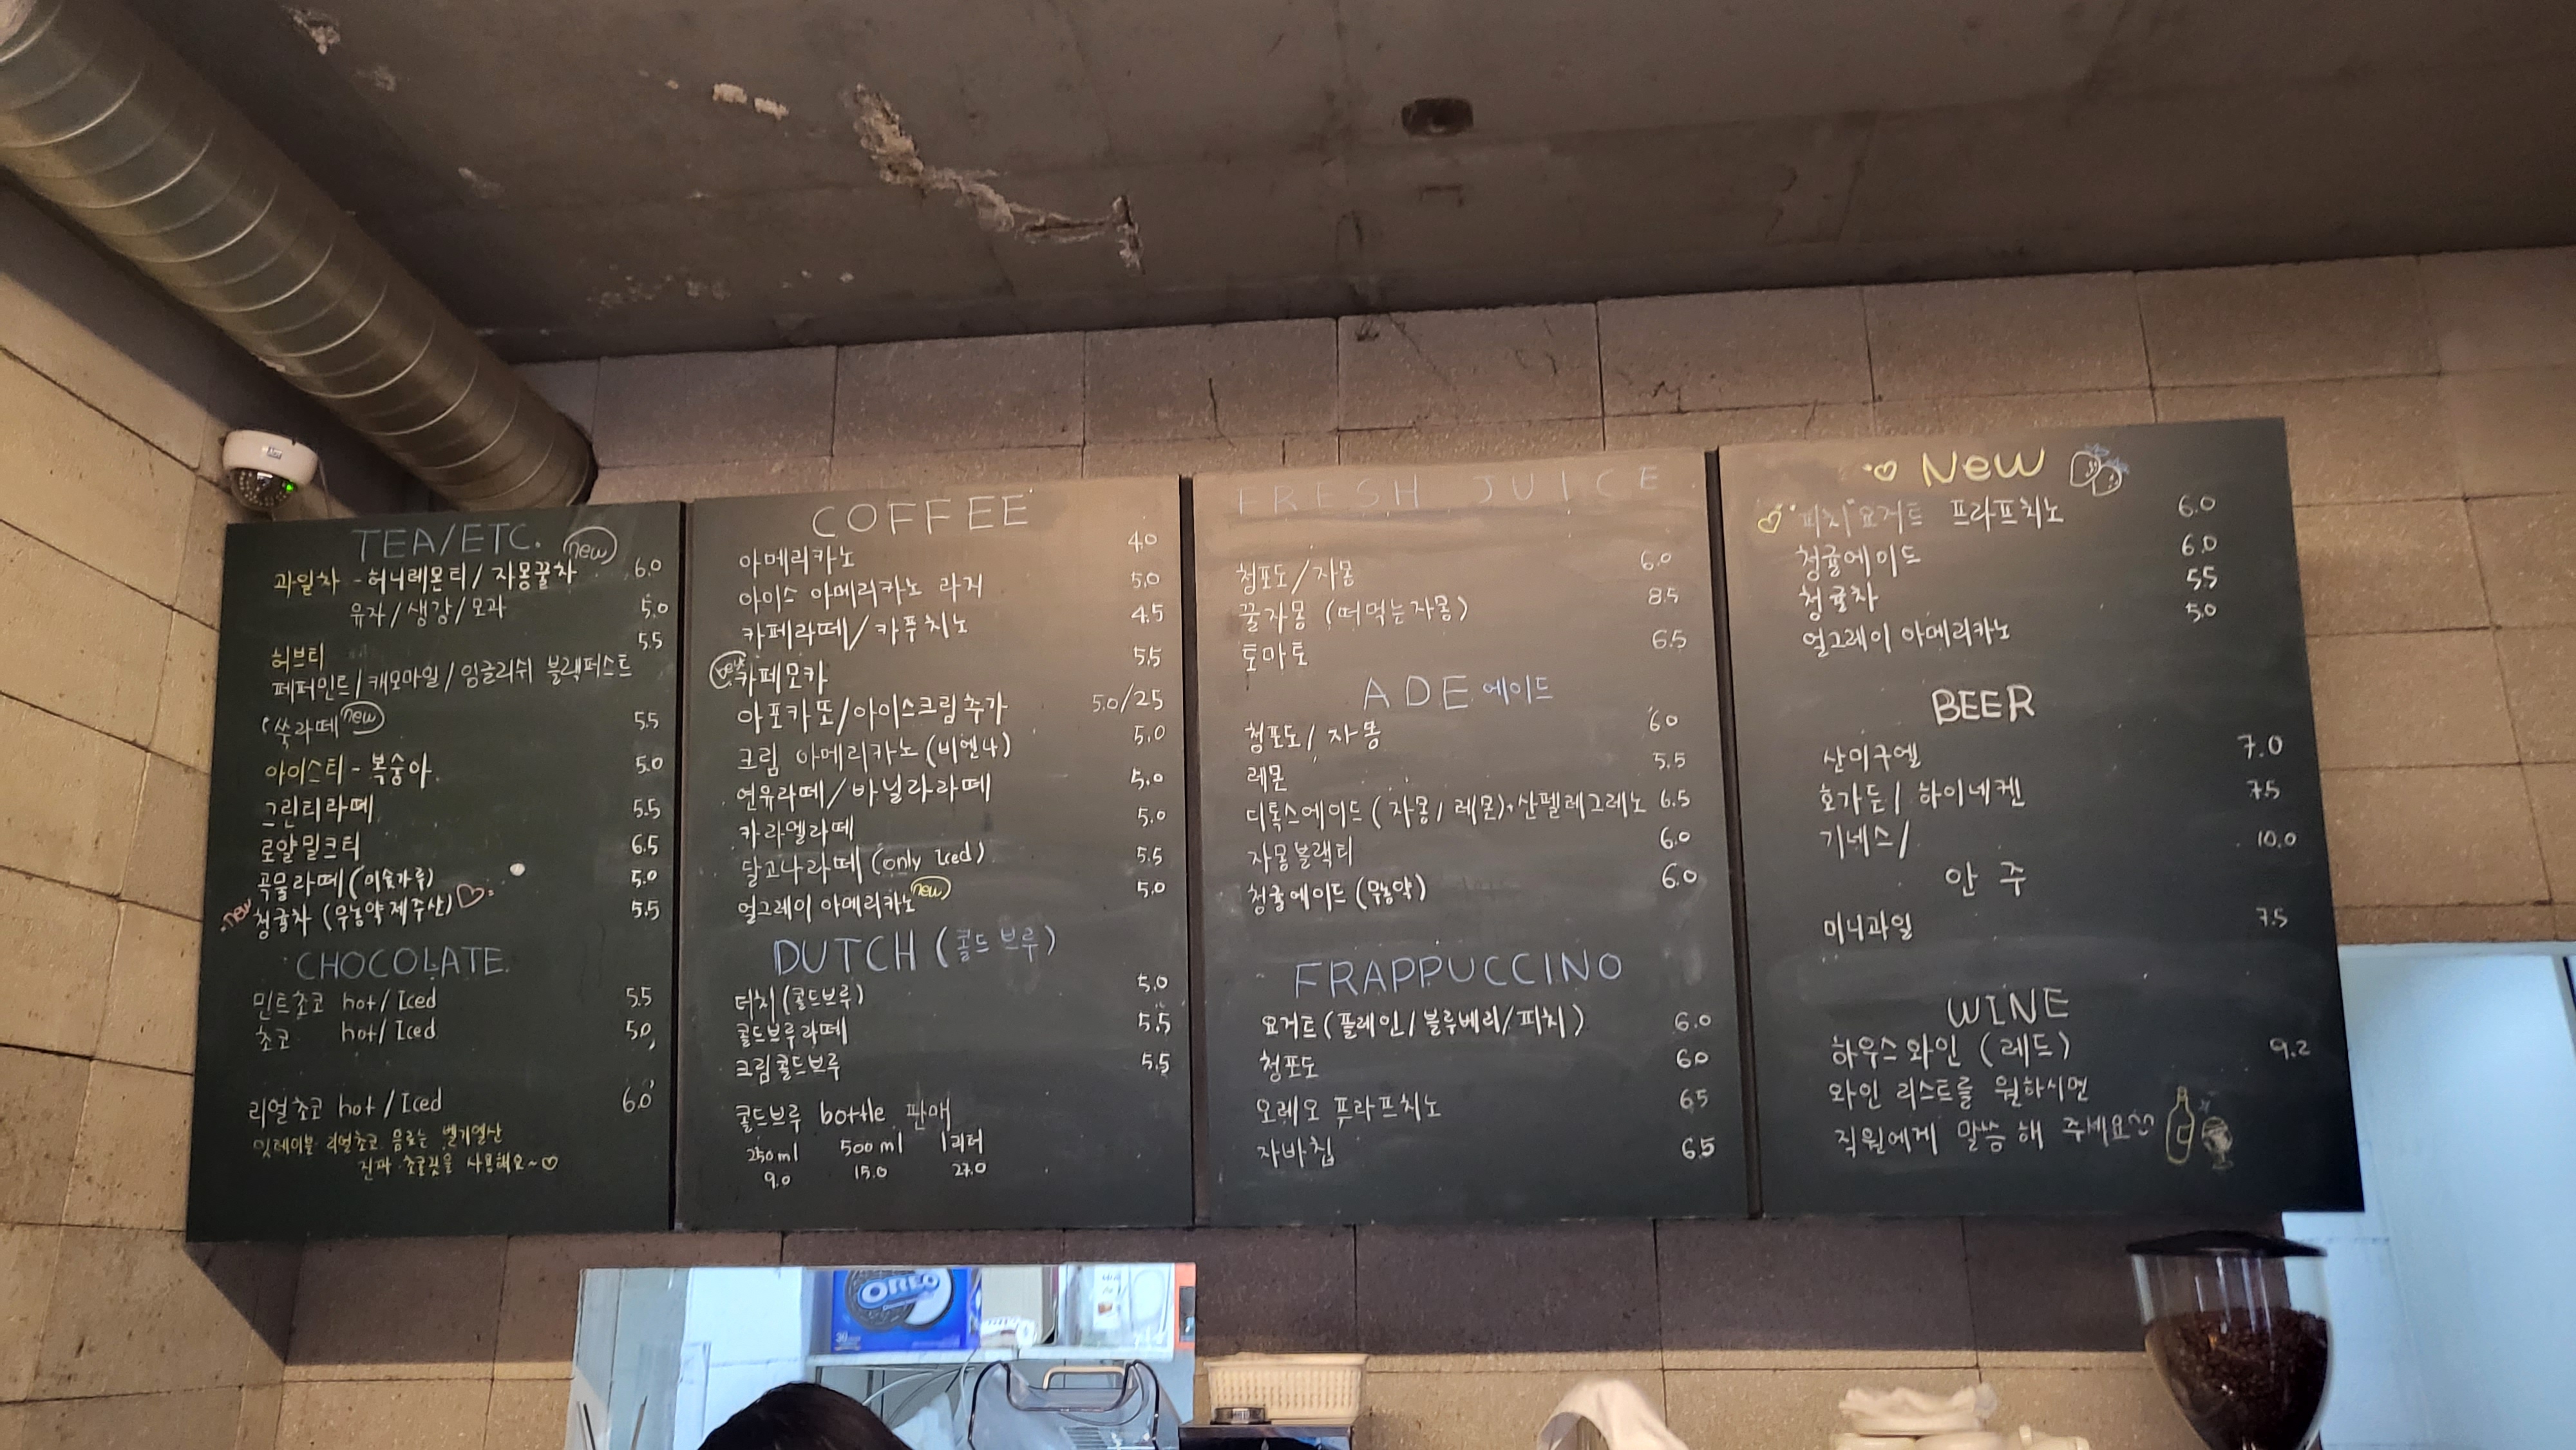 TEA/ETC. new
과일차 - 허니레몬티/자몽꿀차 6.0
유자/생강/모과 5.0
허브티 5.5
페퍼민트/캐모마일/잉글리쉬 블랙퍼스트
쑥라떼 new 5.5
아이스티 - 복숭아 5.0
그린티라떼 5.5
로얄밀크티 6.5
곡물라떼 (미숫가루) 5.0
new 청귤차 (무농약 제주산) 5.5
CHOCOLATE
민트초코 hot/Iced 5.5
초코 hot/Iced 5.0
리얼초코 hot/Iced 6.0
잇테이블 리얼초코 음료는 벨기엘산
진짜 초콜릿을 사용해요~♡
COFFEE
아메리카노 4.0
아이스 아메리카노 라지 5.0
카페라떼/카푸치노 4.5
new 카페모카 5.5
아포카또/아이스크림추가 5.0/2.5
크림 아메리카노 (비엔나) 5.0
연유라떼/바닐라라떼 5.0
카라멜라떼 5.0
달고나라떼 (only Iced) 5.5
얼그레이 아메리카노 new 5.0
DUTCH (콜드브루)
더치 (콜드브루) 5.0
콜드브루라떼 5.5
크림콜드브루 5.5
콜드브루 bottle 판매
250ml 500ml 1리터
9.0 15.0 27.0
FRESH JUICE
청포도/자몽 6.0
꿀자몽 (떠먹는자몽) 8.5
토마토 6.5
ADE 에이드
청포도/자몽 6.0
레몬 5.5
디톡스에이드 (자몽/레몬)+산펠레그레노 6.5
자몽블랙티 6.0
청귤에이드 (무농약) 6.0
FRAPPUCCINO
요거트 (플레인/블루베리/피치) 6.0
청포도 6.0
오레오 프라프치노 6.5
자바칩 6.5
♡ New
♡ "피치"요거트 프라프치노 6.0
청귤에이드 6.0
청귤차 5.5
얼그레이 아메리카노 5.0
BEER
산미구엘 7.0
호가든/하이네켄 7.5
기네스/ 10.0
안주
미니과일 7.5
WINE
하우스와인 (레드) 9.2
와인 리스트를 원하시면
직원에게 말씀해 주세요^^
OREO